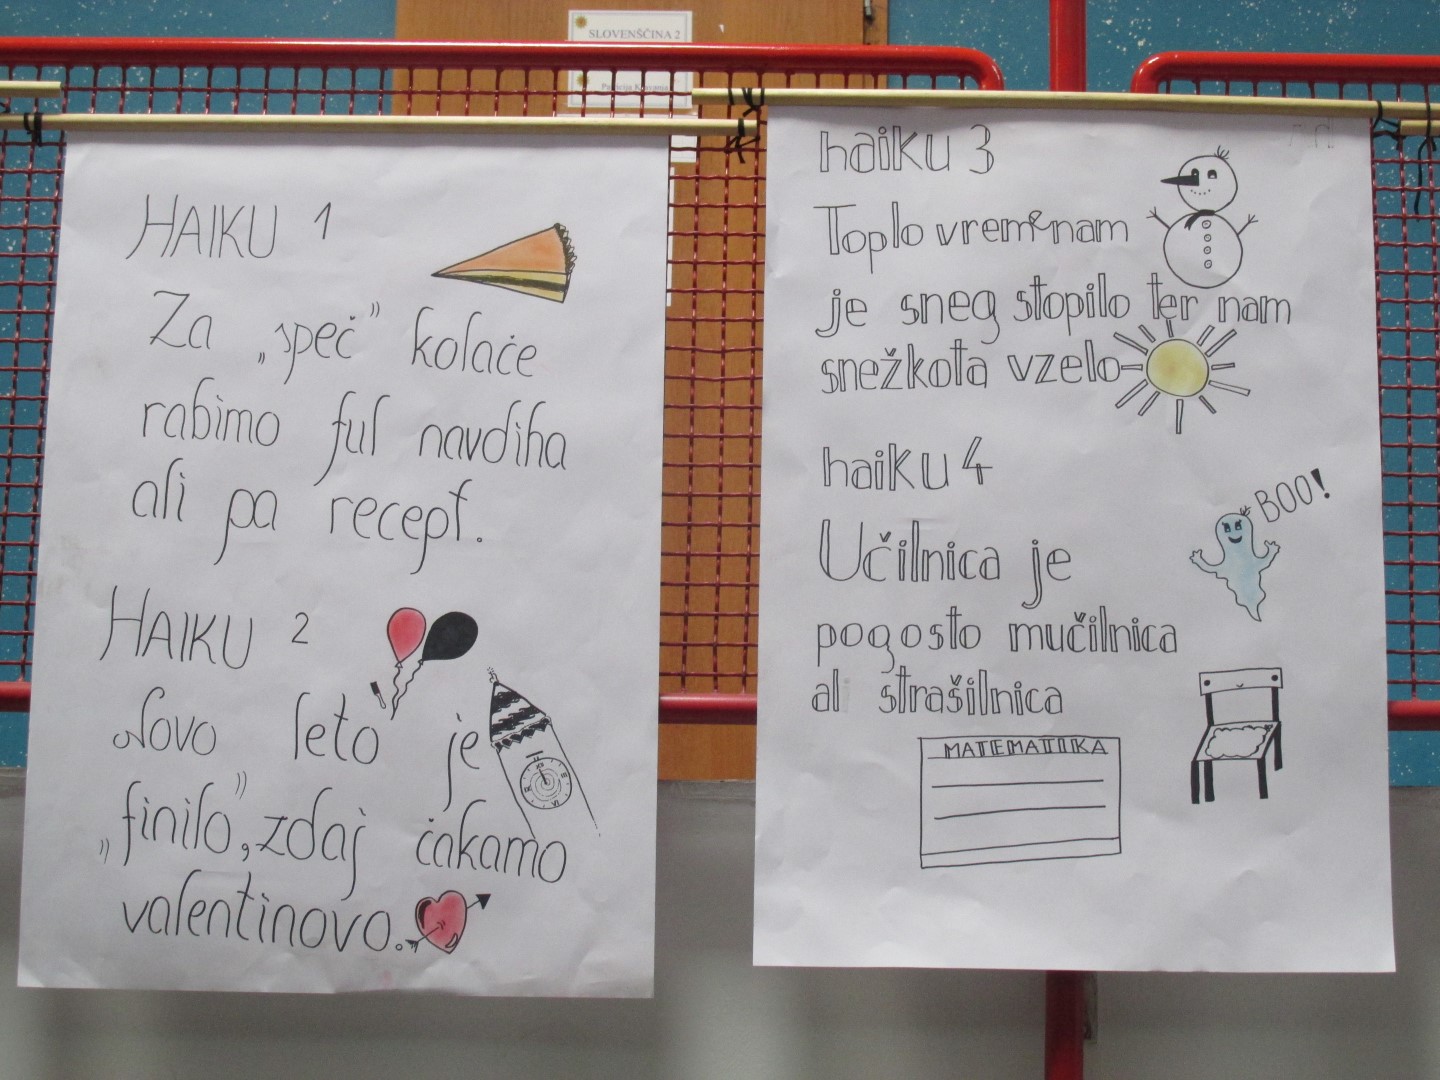 SLOVENŠČINA 2
HAIKU 1
Za „speč” kolače
rabimo ful navdiha
ali pa recept.
HAIKU 2
Novo leto je
„finilo”, zdaj čakamo
valentinovo.
haiku 3
Toplo vreme nam
je sneg stopilo ter nam
snežkota vzelo
haiku 4
BOO!
Učilnica je
pogosto mučilnica
al strašilnica
MATEMATIKA